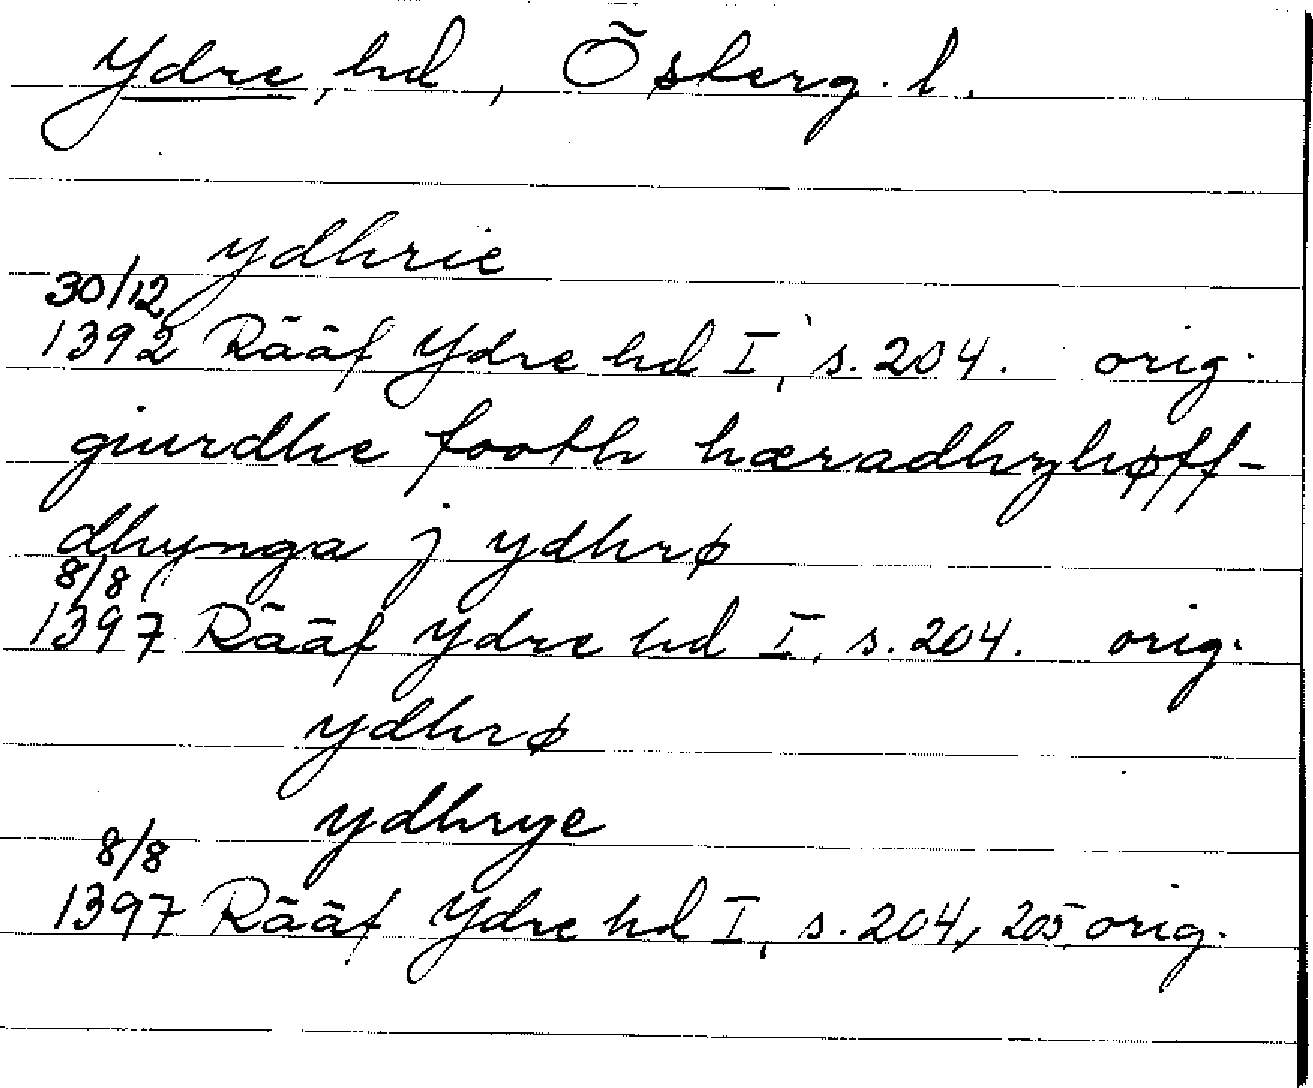 Ydre, hd, Östergö. l.
ydhrie
30/12
1392 Rääf Ydre hd I, s. 204. orig.
giurdhe footh hæradhzhøff-
dhynga j ydhrø
8/8
1397 Rääf Ydre hd I, s. 204. orig.
ydhrø
ydhrye
8/8
1397 Rääf Ydre hd I, s. 204, 205 orig.